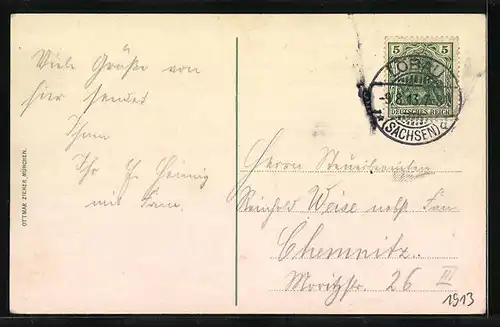 Viele Grüße von
hier sendet
Ihnen
Ihr Th. Heinnig
mit Fam.
OTTMAR ZIEHER, MÜNCHEN.
5 5
DEUTSCHES REICH
LÖBAU
(SACHSEN)
Herrn
Reinhold Weise nebst Fam
Chemnitz.
Moritzstr. 26 III
1913